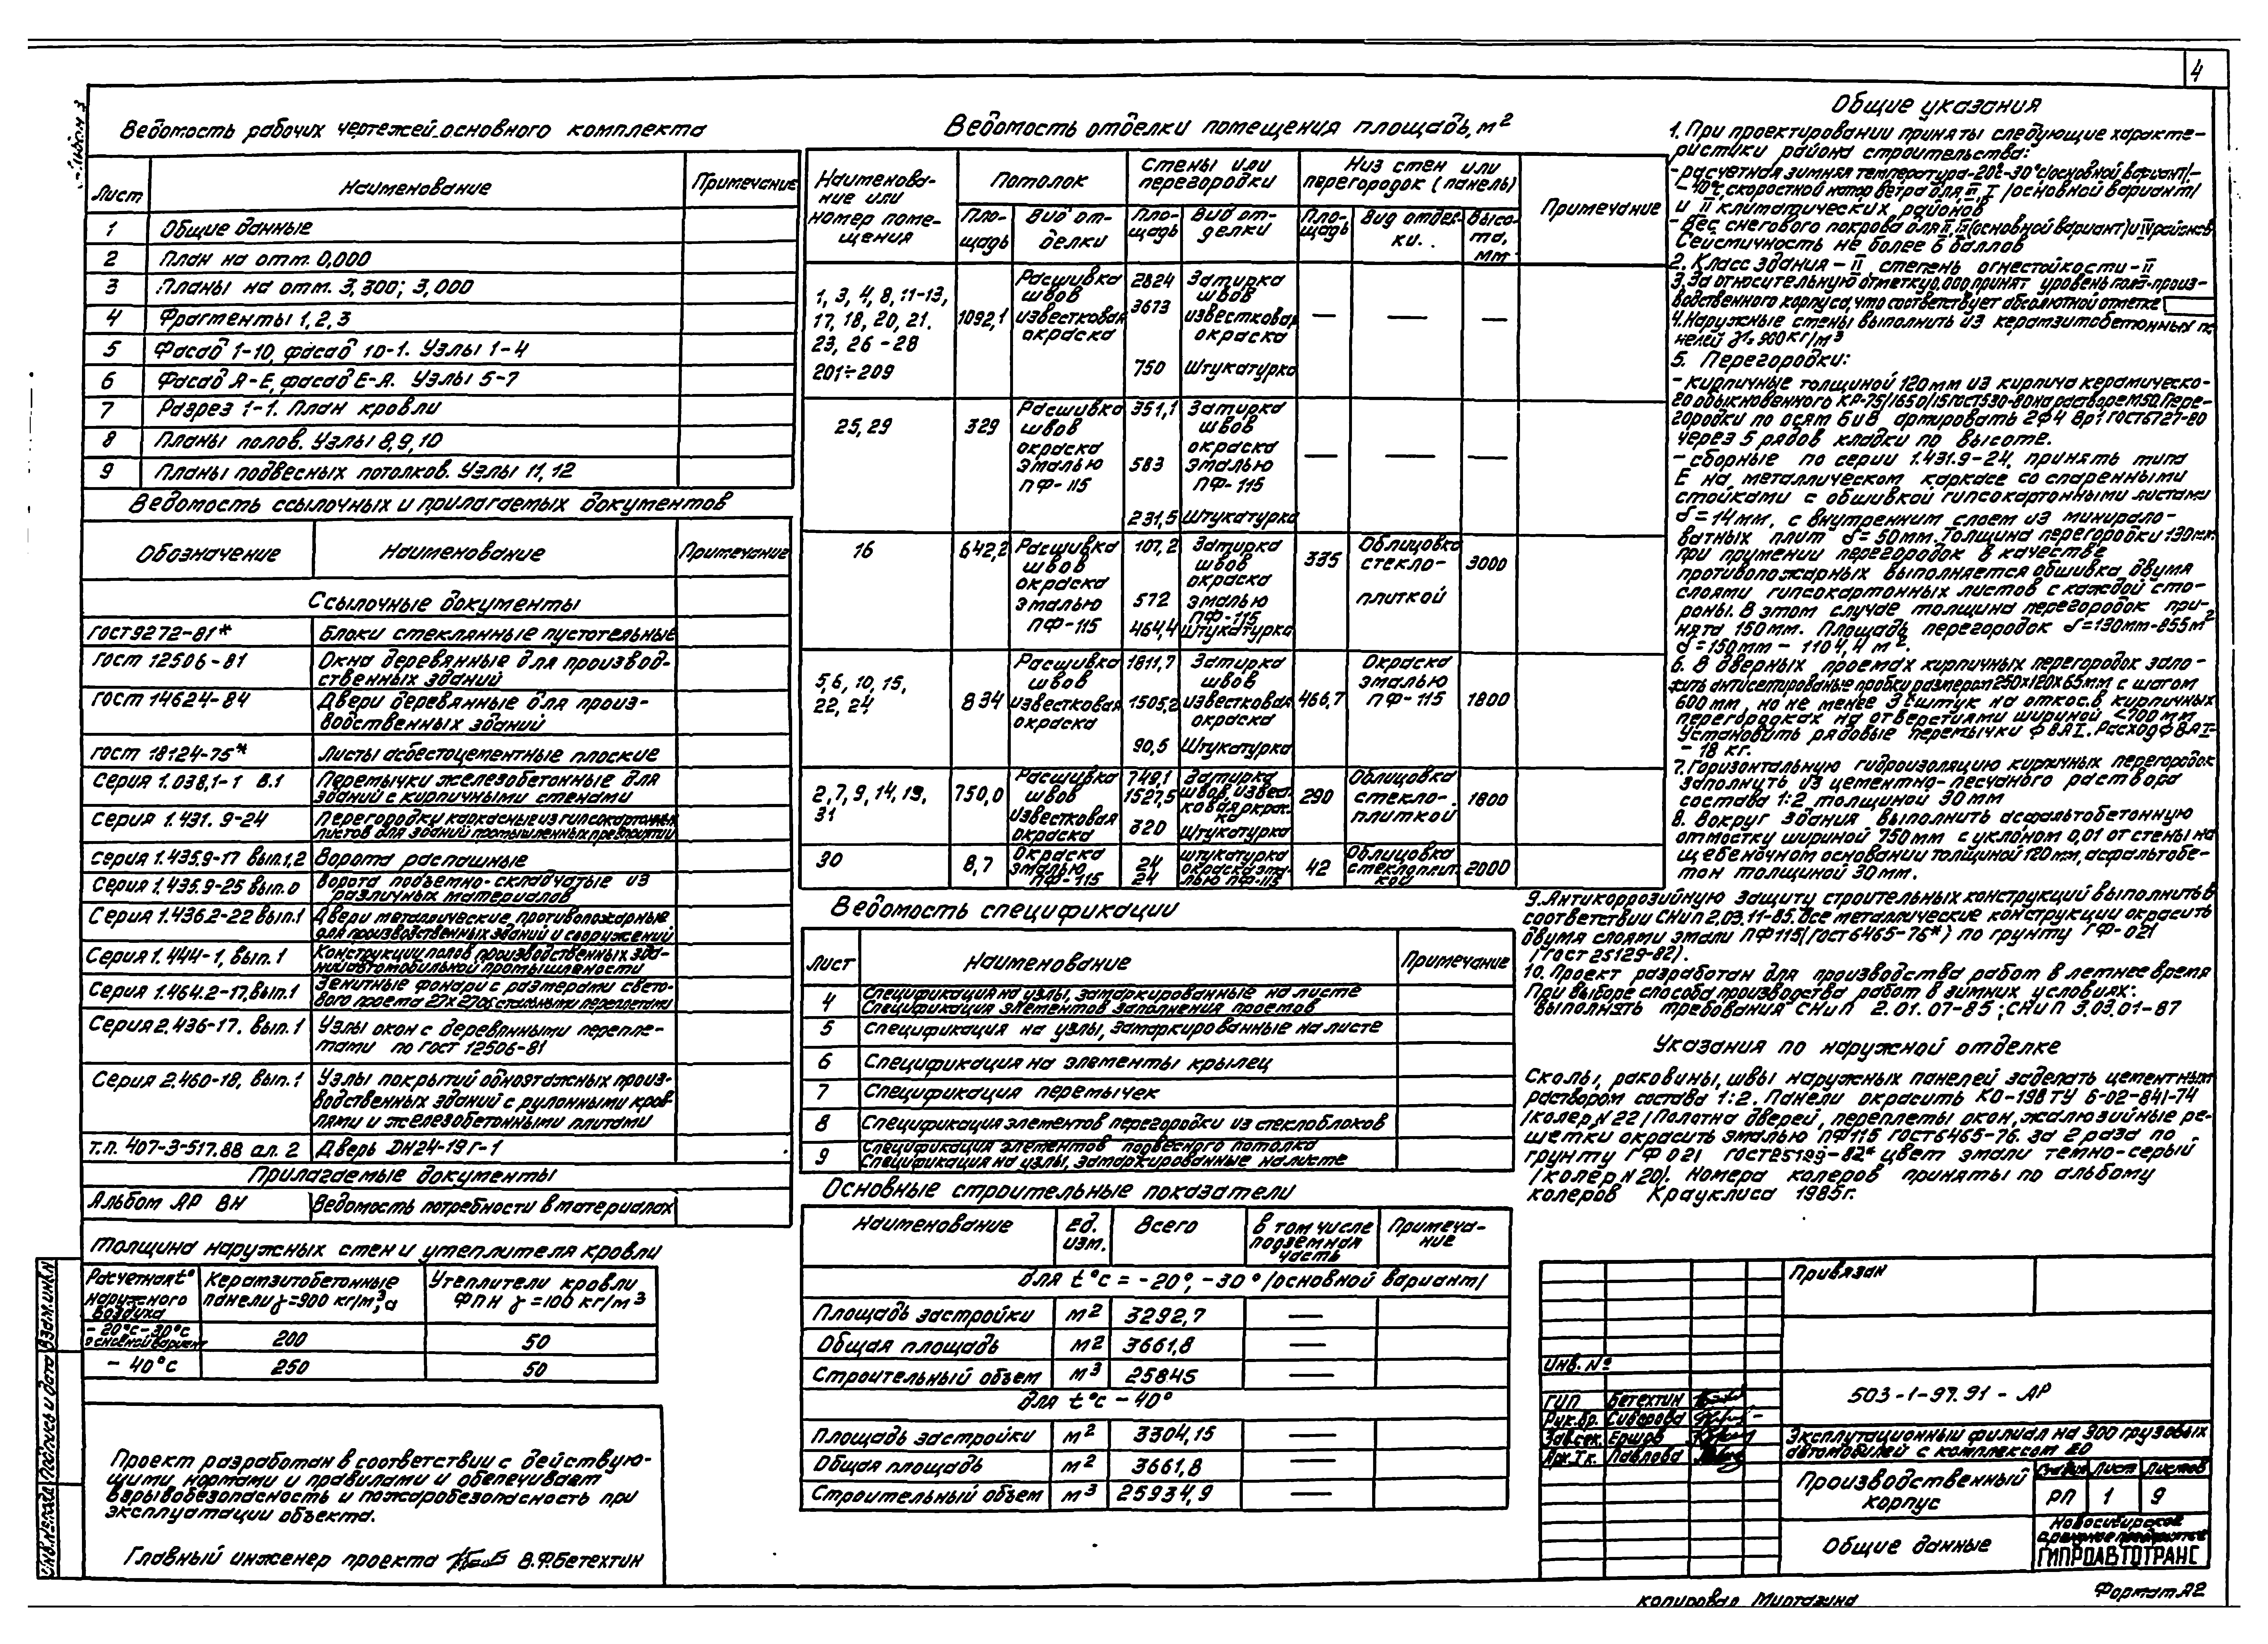 4
Альбом 3
Ведомость рабочих чертежей основного комплекта
Лист Наименование Примечание
1 Общие данные
2 План на отм. 0,000
3 Планы на отм. 3,300; 3,000
4 Фрагменты 1, 2, 3
5 Фасад 1-10, фасад 10-1. Узлы 1-4
6 Фасад А-Е, фасад Е-А. Узлы 5-7
7 Разрез 1-1. План кровли
8 Планы полов. Узлы 8, 9, 10
9 Планы подвесных потолков. Узлы 11, 12
Ведомость ссылочных и прилагаемых документов
Обозначение Наименование Примечание
Ссылочные документы
ГОСТ 9272-81* Блоки стеклянные пустотельные
ГОСТ 12506-81 Окна деревянные для производ-
ственных зданий
ГОСТ 14624-84 Двери деревянные для произ-
водственных зданий
ГОСТ 18124-75* Листы асбестоцементные плоские
Серия 1.038.1-1 в.1 Перемычки железобетонные для
зданий с кирпичными стенами
Серия 1.431.9-24 Перегородки каркасные из гипсокартонных
листов для зданий промышленных предприятий
Серия 1.435.9-17 вып.1,2 Ворота распашные
Серия 1.435.9-25 вып.0 Ворота подъемно-складчатые из
различных материалов
Серия 1.436.2-22 вып.1 Двери металлические противопожарные
для производственных зданий и сооружений
Серия 1.444-1, вып.1 Конструкции полов производственных зда-
ний автомобильной промышлености
Серия 1.464.2-17, вып.1 Зенитные фонари с размерами свето-
вого проема 27х27 со стальными переплетами
Серия 2.436-17. вып.1 Узлы окон с деревянными перепле-
тами по ГОСТ 12506-81
Серия 2.460-18, вып.1 Узлы покрытий одноэтажных произ-
водственных зданий с рулонными кров-
лями и железобетонными плитами
т.п. 407-3-517.88 ал. 2 Дверь ДН24-19Г-1
Прилагаемые документы
Альбом АР ВН Ведомость потребности в материалах
Толщина наружных стен и утеплителя кровли
Расчетная t° Керамзитобетонные Утеплители кровли
наружного панели γ=900 кг/м³, а ФПН γ=100 кг/м³
воздуха
-20°с -30°с 200 50
основной вариант
-40°с 250 50
Проект разработан в соответствии с действую-
щими нормами и правилами и обепечивает
взрывобезопасность и пожаробезопасность при
эксплуатации объекта.
Главный инженер проекта В.Ф.Бетехтин
Ведомость отделки помещения площадь, м²
Наименова- Потолок Стены или Низ стен или Примечание
ние или перегородки перегородок (панель)
номер поме- Пло- Вид от- Пло- Вид от- Пло- Вид отдел- Высо-
щения щадь делки щадь делки щадь ки. та,
мм
Расшивка 2824 Затирка
1, 3, 4, 8, 11-13, швов швов
17, 18, 20, 21. 1092,1 известковая 3673 известковая — — —
23, 26-28 окраска окраска
201÷209 750 Штукатурка
Расшивка 351,1 Затирка
25, 29 329 швов швов
окраска окраска
эмалью 583 эмалью — — —
ПФ-115 ПФ-115
231,5 Штукатурка
16 642,2 Расшивка 107,2 Затирка Облицовка
швов швов 335 стекло- 3000
окраска окраска
эмалью 572 эмалью плиткой
ПФ-115 ПФ-115
464,4 Штукатурка
Расшивка 1811,7 Затирка Окраска
5, 6, 10, 15, швов швов эмалью
22, 24 834 известковая 1505,2 известковая 466,7 ПФ-115 1800
окраска окраска
90,5 Штукатурка
Расшивка 749,1 Затирка Облицовка
2, 7, 9, 14, 19, 750,0 швов 1527,5 швов, извест- 290 стекло- 1800
31 известковая ковая окрас- плиткой
окраска ка
320 Штукатурка
30 8,7 Окраска 24 штукатурка 42 Облицовка 2000
эмалью 24 окраска эма- стеклоплит-
ПФ-115 лью ПФ-115 кой
Ведомость спецификации
Лист Наименование Примечание
4 Спецификация на узлы, замаркированные на листе
Спецификация элементов заполнения проемов
5 Спецификация на узлы, замаркированные на листе
6 Спецификация на элементы крылец
7 Спецификация перемычек
8 Спецификация элементов перегородки из стеклоблоков
9 Спецификация элементов подвесного потолка
Спецификация на узлы, замаркированные на листе
Основные строительные показатели
Наименование Ед. Всего в том числе Примеча-
изм. подземная ние
часть
для t°с = -20°, -30° /основной вариант/
Площадь застройки м² 3292,7 —
Общая площадь м² 3661,8 —
Строительный объем м³ 25845 —
для t°с -40°
Площадь застройки м² 3304,15 —
Общая площадь м² 3661,8 —
Строительный объем м³ 25934,9 —
Общие указания
1. При проектировании приняты следующие характе-
ристики района строительства:
- расчетная зимняя температура -20°-30°с/основной вариант/-
-40°с скоростной напор ветра для III, I /основной вариант/
и II климатических районов
- вес снегового покрова для II, III (основной вариант) и IV районов
Сеисмичность не более 6 баллов
2. Класс здания - II, степень огнестойкости - II
3. За относительную отметку 0,000 принят уровень пола произ-
водственного корпуса, что соответствует абсолютной отметке
4. Наружные стены выполнить из керамзитобетонных па-
нелей γ=900кг/м³
5. Перегородки:
- кирпичные толщиной 120мм из кирпича керамическо-
го обыкновенного КР-75/1650/15 ГОСТ530-80 на растворе М50. Пере-
городки по осям 6 и 8 армировать 2ф4 ВрI ГОСТ6727-80
через 5 рядов кладки по высоте.
- сборные по серии 1.431.9-24, принять типа
Е на металлическом каркасе со спаренными
стойками с обшивкой гипсокартонными листами
δ=14мм, с внутренним слоем из минирало-
ватных плит δ=50мм. Толщина перегородки 130мм
при прумении перегородок в качестве
противопожарных выполняется обшивка двумя
слоями гипсокартонных листов с каждой сто-
роны. В этом случае толщина перегородок при-
нята 150мм. Площадь перегородок δ=130мм-855м²
δ=150мм - 1104,4 м².
6. В дверных проемах кирпичных перегородок зало-
жить антисептированные пробки размером 250х120х65мм с шагом
600мм, но не менее 3х штук на откос. в кирпичных
перегородках на отверстиями шириной <700мм
Установить рядовые перемычки ф8АI. Расход ф8АI-
- 18 кг.
7. Горизонтальную гидроизоляцию кирпичных перегородок
заполнить из цементно-песчаного раствора
состава 1:2 толщиной 30мм
8. Вокруг здания выполнить асфальтобетонную
отмостку шириной 750мм с уклоном 0,01 от стены на
щебеночном основании толщиной 120мм, асфальтобе-
тон толщиной 30мм.
9. Антикоррозийную защиту строительных конструкций выполнить в
соответствии СНиП 2.03.11-85. Все металлические конструкции окрасить
двумя слоями эмали ПФ115(ГОСТ6465-76*) по грунту ГФ-021
(ГОСТ 25129-82).
10. Проект разработан для производства работ в летнее время
При выборе способа производства работ в зимних условиях:
выполнять требования СНиП 2.01.07-85; СНиП 3.03.01-87
Указания по наружной отделке
Сколы, раковины, швы наружных панелей заделать цементным
раствором состава 1:2. Панели окрасить КО-198 ТУ 6-02-841-74
/колер N 22/ Полотна дверей, переплеты окон, жалюзийные ре-
шетки окрасить эмалью ПФ115 ГОСТ6465-76. за 2 раза по
грунту ГФ 021 ГОСТ25199-82* цвет эмали темно-серый
/колер N 20/. Номера колеров приняты по альбому
колеров Крауклиса 1985г.
Привязан
Инв. №
503-1-97.91 - АР
ГИП Бетехтин
Рук.бр. Сиворова
Зав.сек. Ершов
Арх.Iк. Павлова
Эксплутационный филиал на 300 грузовых
автомобилей с комплексом ЕО
Производственный
корпус
Стадия Лист Листов
РП 1 9
Общие данные
Новосибирское
ГИПРОАВТОТРАНС
Взам.инв.N
Подпись и дата
Инв.N подл.
копировал Миртазина
Формат А2